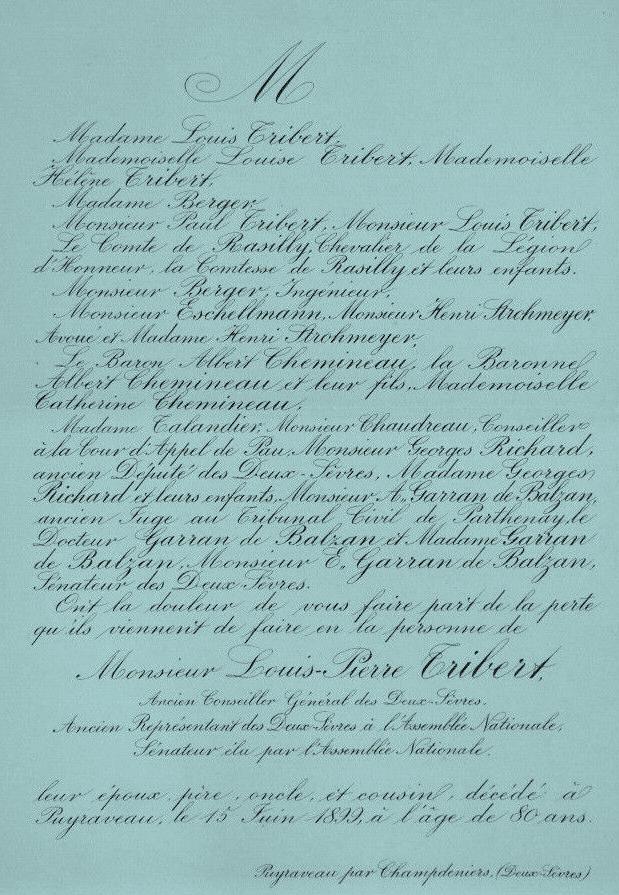 M
Madame Louis Tribert,
Mademoiselle Louise Tribert, Mademoiselle
Hélène Tribert,
Madame Berger,
Monsieur Paul Tribert, Monsieur Louis Tribert,
Le Comte de Rasilly, Chevalier de la Légion
d'Honneur, la Comtesse de Rasilly et leurs enfants.
Monsieur Berger, Ingénieur,
Monsieur Eschellmann, Monsieur Henri Strohmeyer,
Avoué et Madame Henri Strohmeyer,
Le Baron Albert Chemineau, la Baronne
Albert Chemineau et leur fils, Mademoiselle
Catherine Chemineau,
Madame Talandier, Monsieur Chaudreau, Conseiller
à la Cour d'Appel de Pau, Monsieur Georges Richard,
ancien Député des Deux-Sèvres, Madame Georges
Richard et leurs enfants, Monsieur A. Garran de Balzan,
ancien Juge au Tribunal Civil de Parthenay, le
Docteur Garran de Balzan et Madame Garran
de Balzan, Monsieur E. Garran de Balzan,
Sénateur des Deux Sèvres.
Ont la douleur de vous faire part de la perte
qu'ils viennent de faire en la personne de
Monsieur Louis-Pierre Tribert,
Ancien Conseiller Général des Deux-Sèvres.
Ancien Représentant des Deux-Sèvres à l'Assemblée Nationale,
Sénateur élu par l'Assemblée Nationale.
leur époux, père, oncle, et cousin, décédé à
Puyraveau, le 15 Juin 1899, à l'âge de 80 ans.
Puyraveau par Champdeniers, (Deux-Sèvres)